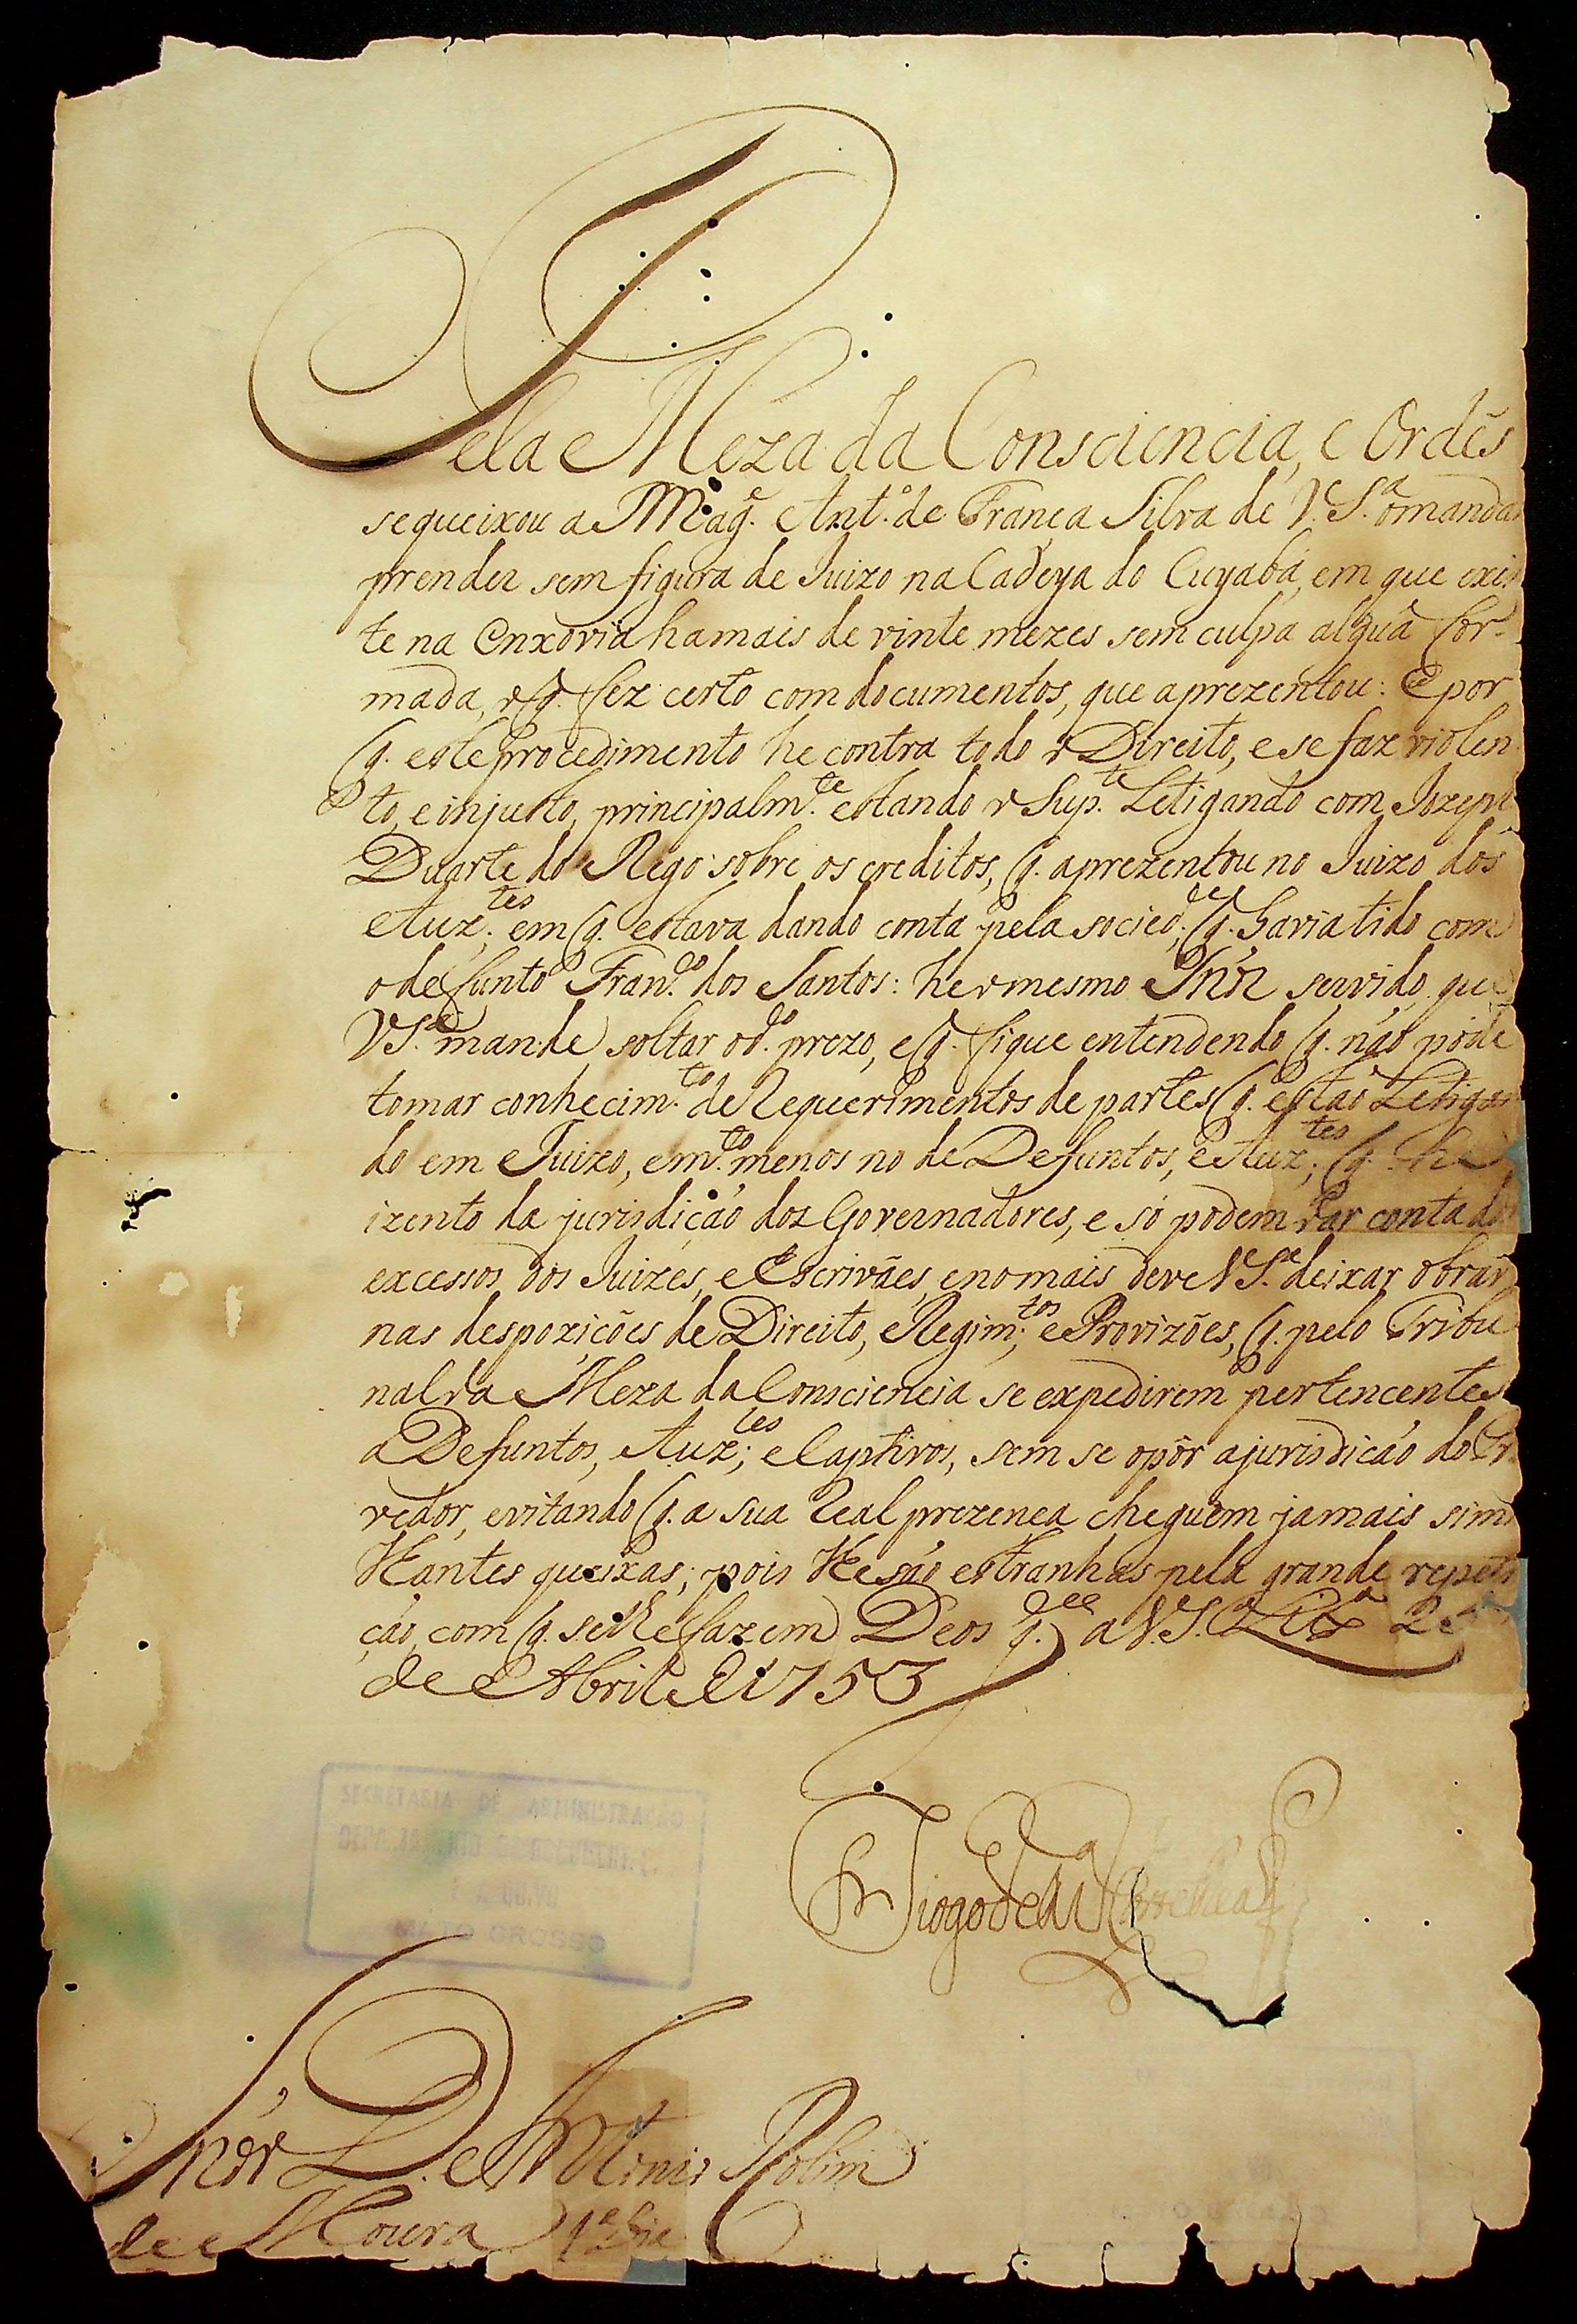 Pela Meza da Consciencia, e Ordẽs
se queixou a Mag.e Ant.o de França Silva de V. S.a o mandar
prender sem figura de Juizo na Cadeya do Cuyabá, em que exis
te na Enxovia ha mais de vinte mezes sem culpa algũa for-
mada, o q. fez certo com documentos, que aprezentou: E por
q. este procedimento he contra todo o Direito, e se faz violen
to, e injusto, principalm.te estando o Sup.te Letigando com Jozeph
Duarte do Rego sobre os creditos, q. aprezentou no Juizo dos
Auz.tes; em q. estava dando conta pela socied.e, q. havia tido com
o defunto Fran.co dos Santos: he o mesmo Snõr servido, que
V S.a mande soltar o d.o prezo, e q. fique entendendo q. não póde
tomar conhecim.to de Requerimentos de partes q. estão Letigan
do em Juizo, e m.to menos no de Defuntos, e Auz.tes; q. he
izento da jurisdição dos Governadores, e só podem dar conta dos
excessos dos Juizes, e Escrivães, e no mais deve V S.a deixar obrar
nas despozições de Direito, e Regim.tos; e Provizões, q. pelo Tribu
nal da Meza da Consciencia se expedirem pertencentes
a Defuntos, e Auz.tes; e Captivos, sem se opôr a jurisdicão do Pro
vedor, evitando q. a sua Real prezença cheguem jamais simi
lhantes queixas; pois lhe são estranhas pela grande repeti
ção, com q. se lhe fazem Deos g.de a V. S.a Lix.a
de Abril de 1753
Diogo de M.ca Corte Real
Snõr D. Antonio Rolim
de Moura
SECRETARIA DE ADMINISTRAÇÃO
MATO GROSSO